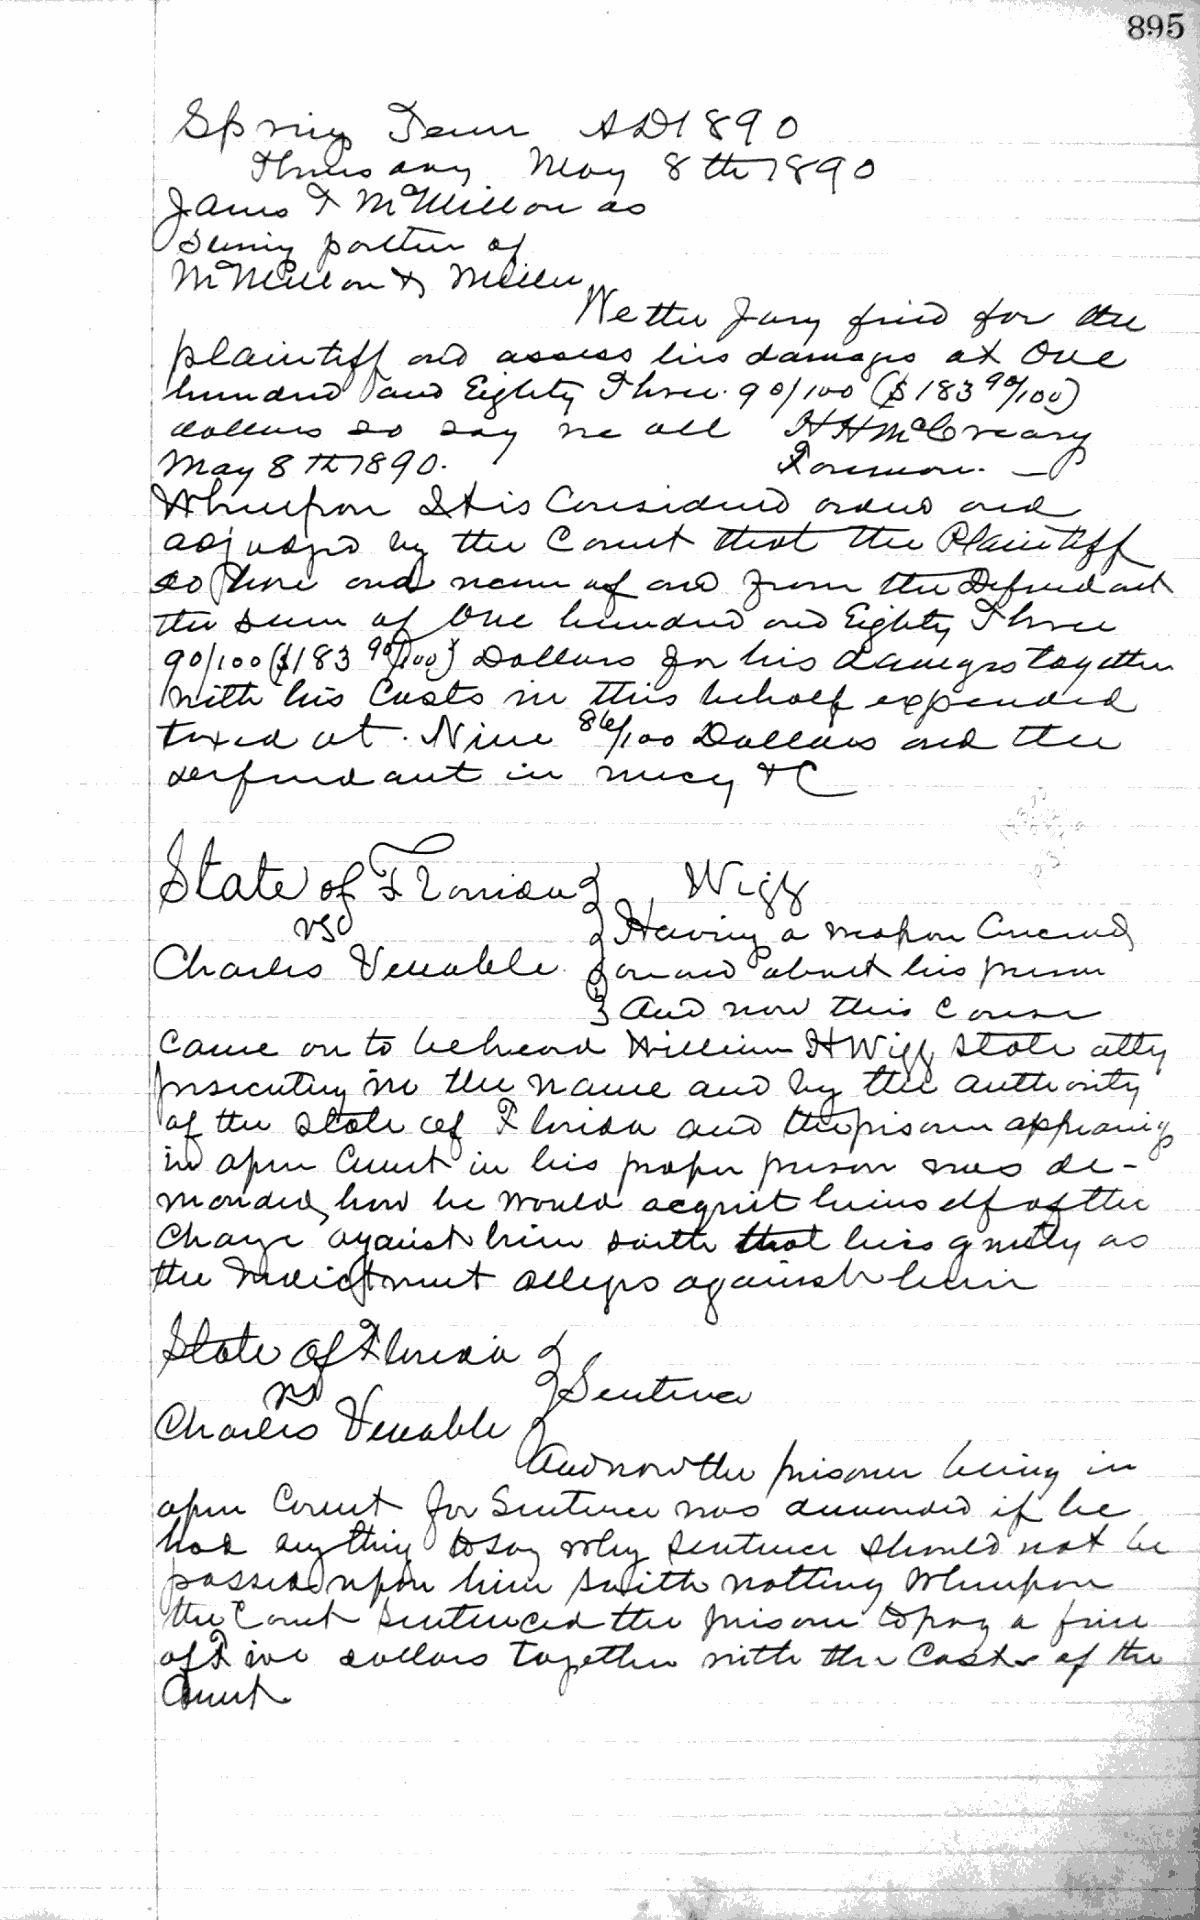 895
Spring Term AD 1890
Thursday May 8th 1890
James F McMillon as
Surving partner of
McMillon & Miller
We the Jury find for the
plaintiff and assess his damages at One
hundred and Eighty Three 90/100 ($183 90/100)
dollars so say we all H H McCreary
May 8th 1890. Foreman.
Whereupon It is Considered ordered and
adjudged by the Court that the Plaintiff
do have and recover of and from the Defendant
the sum of One hundred and Eighty Three
90/100 ($183 90/100) Dollars for his damages together
with his Costs in this behalf expended
taxed at Nine 86/100 Dollars and the
defendant in mercy &C
State of Florida } Wigg
vs } Having a weapon Concealed
Charles Venable } on and about his person
} And now this Cause
Came on to be heard William H Wigg State atty
prosecuting in the name and by the authority
of the State of Florida and the prisoner appearing
in open Court in his proper person was de-
manded, how he would acquit himself of the
Charge against him saith that he is guilty as
the Indictment alleges against him
State of Florida }
vs } Sentence
Charles Venable }
And now the prisoner being in
open Court for Sentence was demanded if he
had anything to say why sentence should not be
passed upon him saith nothing Whereupon
the Court sentenced the prisoner to pay a fine
of Five dollars together with the Costs of the
Court.